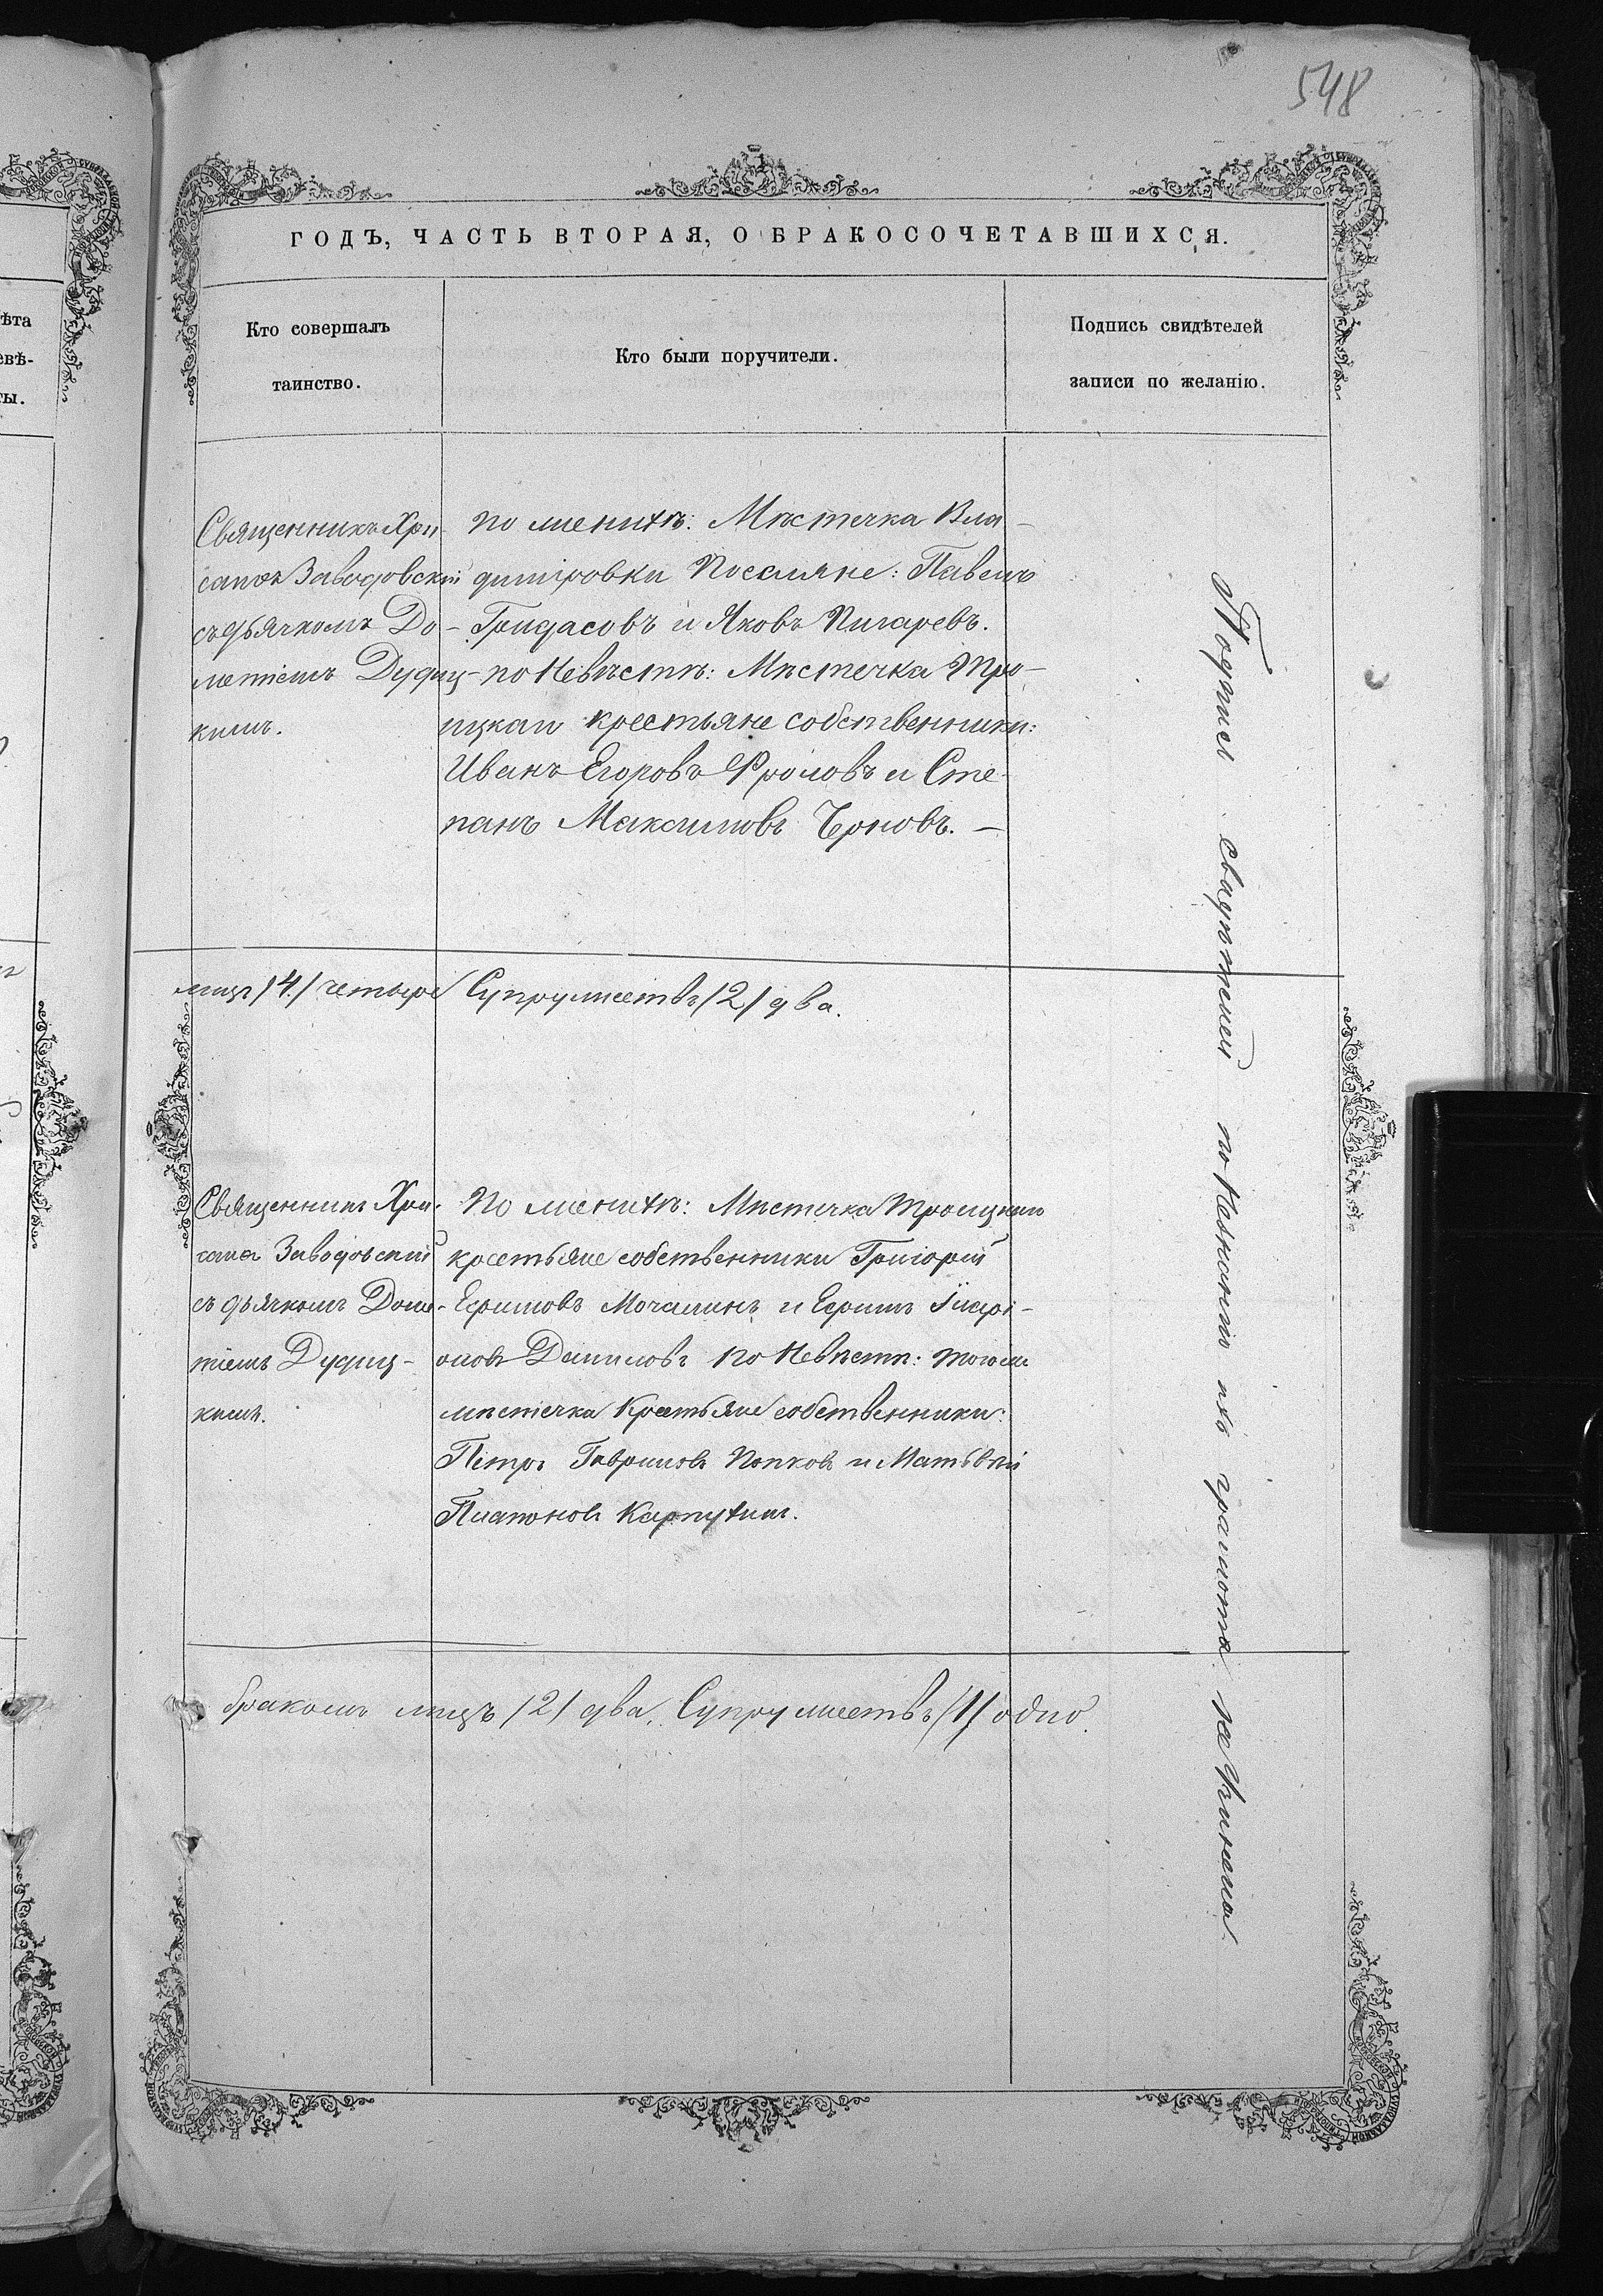 548
ГОДЪ, ЧАСТЬ ВТОРАЯ, О БРАКОСОЧЕТАВШИХСЯ.
ѣта
евѣ-
ты.
Кто совершалъ
таинство.
Кто были поручители.
Подпись свидѣтелей
записи по желанію.
Священникъ Хри-
санфъ Заводовскій
съ дьячкомъ До-
метіемъ Дудиц-
кимъ.
по женихѣ: Мѣстечка Вла-
димировки Поселяне: Павелъ
Гридасовъ и Яковъ Пигаревъ.
по Невѣстѣ: Мѣстечка Тро-
ицкаи крестьяне собственники:
Иванъ Егоровъ Фроловъ и Сте-
панъ Максимовъ Чрновъ. —
лицъ /4/ четыре Супружествъ /2/ два.
Священникъ Хри-
санфъ Заводовскій
съ дьячкомъ Доме-
тіемъ Дудиц-
кимъ.
По женихѣ: Мѣстечка Троицкаго
крестьяне собственники Григорій
Ефимовъ Мочалинъ и Ефимъ Иларі-
оновъ Даниловъ по Невѣстѣ: того же
мѣстечка Крестьяне собственники:
Петръ Гавриловъ Попковъ и Матьвѣй
Платоновъ Карпухинъ.
бракомъ лицъ /2/ два, Супружествъ /1/ одно.
Подписи свидѣтелей по Незнанію ихъ грамоты не Учинено.